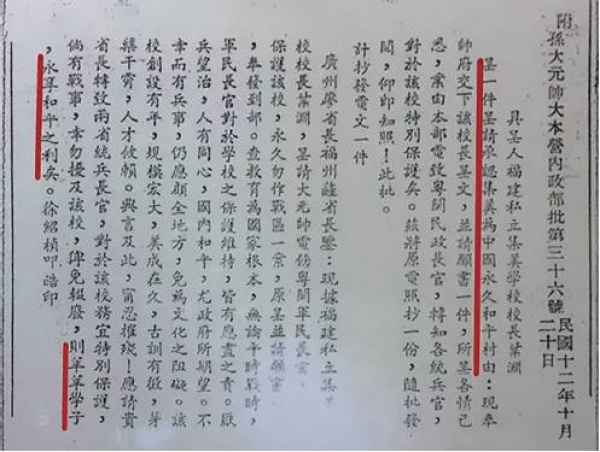 附孫大元帥大本營內政部批第三十六號 民國十二年十月二十日
具呈人福建私立集美學校校長葉淵
呈一件呈請承認集美為中國永久和平村由：現奉
帥府交下該校長呈文，並請願書一件，所呈各情已
悉，業由本部電致粵閩民政長官，轉知各統兵官，
對於該校特別保護矣。茲將原電照抄一份，隨批發
閱，仰即知照！此批。
計抄發電文一件
廣州廖省長福州薩省長鑒：現據福建私立集美
校校長葉淵，呈請大元帥電飭粵閩軍民長官，
保護該校，永久勿作戰區一案，原呈並請願書
，奉發到部。查教育為國家根本，無論平時戰時，
軍民長官對於學校之保護維持，皆有應盡之責。厭
兵望治，人有同心，國內和平，尤政府所期望。不
幸而有兵事，仍應顧全地方，免為文化之阻礙。該
校創設有年，規模宏大，美成在久，古訓有徵，芽
櫱干霄，人才攸賴。興言及此，寧忍摧殘！應請貴
省長特致兩省統兵長官，對於該校務宜特別保護，
倘有戰事，幸勿擾及該校，俾免輟廢，則莘莘學子
，永享和平之利矣。徐紹楨叩誥印